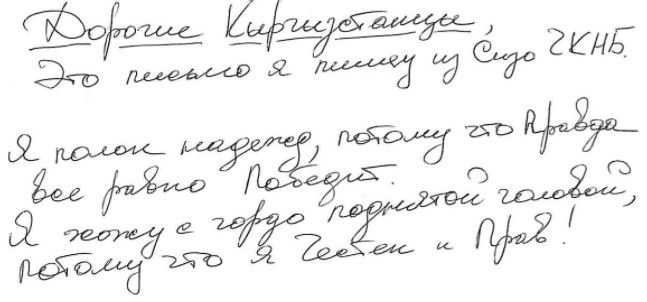 Дорогие Кыргызстанцы,
Это письмо я пишу из Сизо ГКНБ.
Я полон надежд, потому что Правда
все равно Победит.
Я хожу с гордо поднятой головой,
потому что я Честен и Прав!